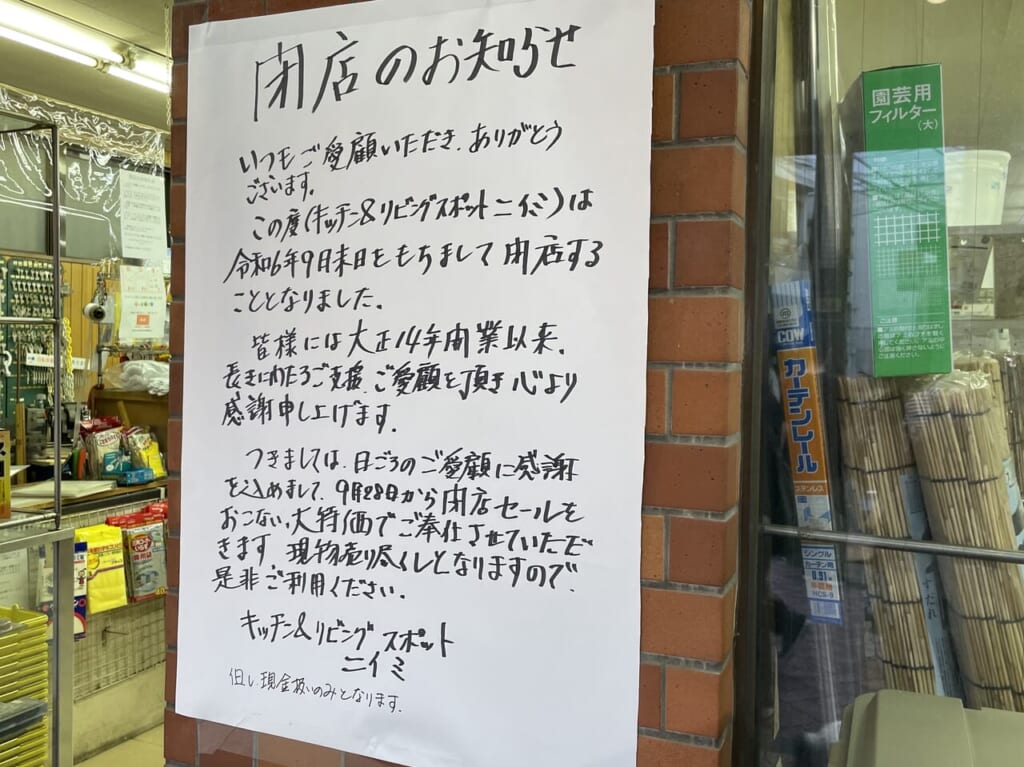 閉店のお知らせ
いつもご愛顧いただき、ありがとう
ございます。
この度(キッチン&リビングスポットニイミ)は
令和6年9月末日をもちまして閉店する
こととなりました。
皆様には大正14年開業以来、
長きにわたるご支援、ご愛顧を頂き心より
感謝申し上げます。
つきましては、日ごろのご愛顧に感謝
を込めまして、9月28日から閉店セールを
おこない、大特価でご奉仕させていただ
きます。現物売り尽くしとなりますので、
是非ご利用ください。
キッチン&リビングスポット
ニイミ
但し現金扱いのみとなります。
園芸用
フィルター
(大)
COW
カーテンレール
ステンレス
シングル
カーテン用
0.91m
HCS-9
すだれ